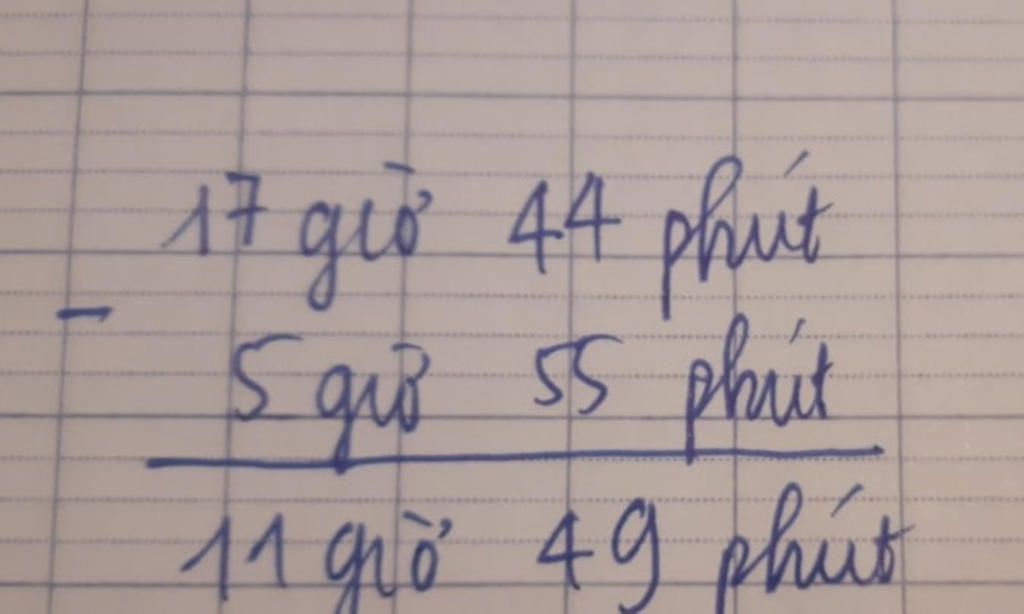 17 giờ 44 phút
-
5 giờ 55 phút
11 giờ 49 phút